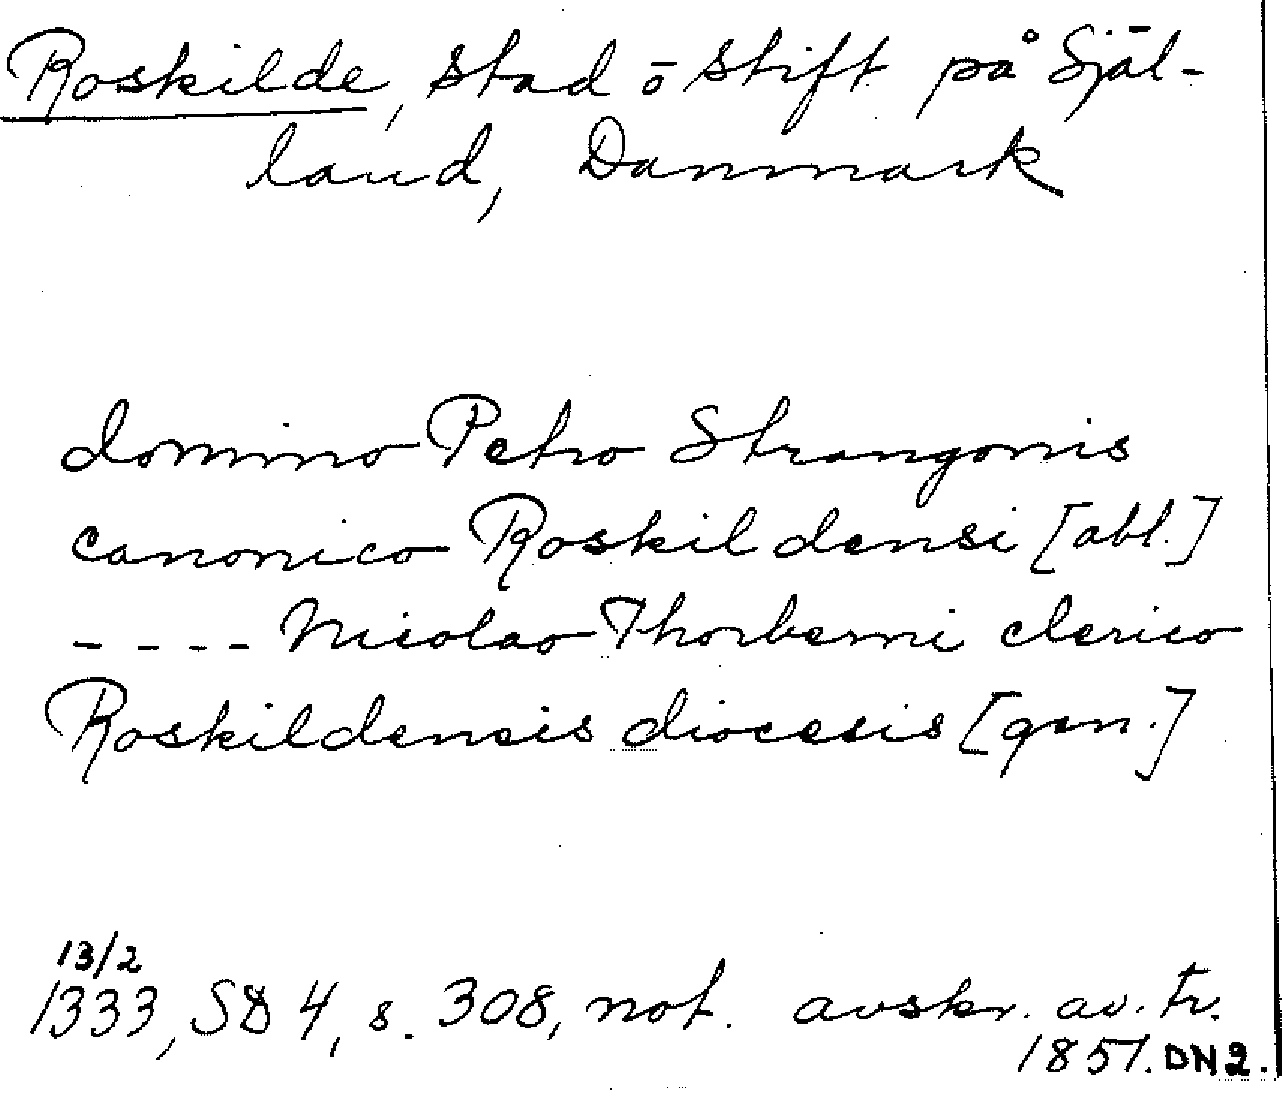 Roskilde, stad ō stift på Själ-
land, Danmark
domino Petro Strangonis
canonico Roskildensi [abl.]
- - - - Nicolao Thorberni clerico
Roskildensis diocesis [gen.]
13/2
1333, SD 4, s. 308, not. avskr. av. tr.
1857. DN2.